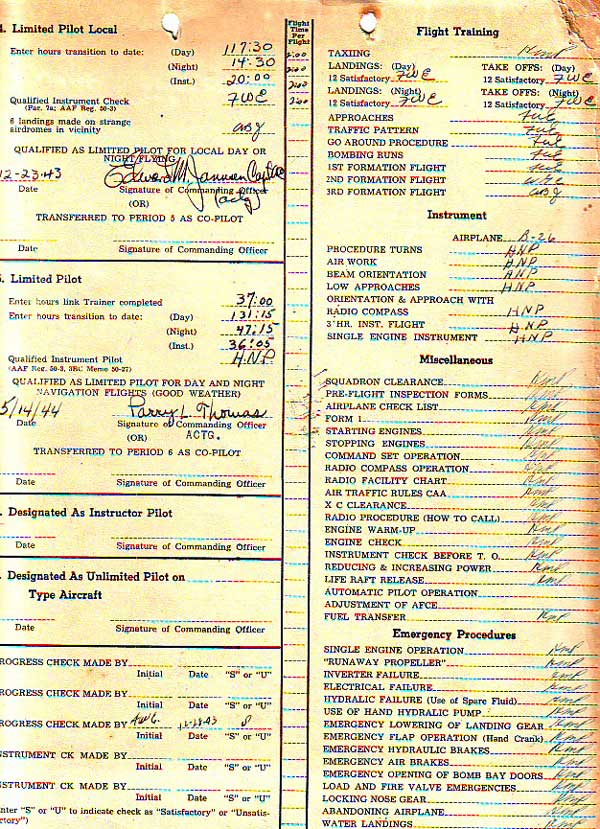 4. Limited Pilot Local
Enter hours transition to date: (Day) 117:30
(Night) 14:30
(Inst.) 20:00
Qualified Instrument Check FWE
(Par. 7a; AAF Reg. 50-3)
6 landings made on strange
airdromes in vicinity
QUALIFIED AS LIMITED PILOT FOR LOCAL DAY OR
NIGHT FLYING
12-23-43 Edward M.
Date Signature of Commanding Officer
(OR) (actg)
TRANSFERRED TO PERIOD 5 AS CO-PILOT
Date Signature of Commanding Officer
5. Limited Pilot
Enter hours link Trainer completed 37:00
Enter hours transition to date: (Day) 131:15
(Night) 47:15
(Inst.) 36:05
Qualified Instrument Pilot H.N.P.
(AAF Reg. 50-3, 3RC Memo 50-27)
QUALIFIED AS LIMITED PILOT FOR DAY AND NIGHT
NAVIGATION FLIGHTS (GOOD WEATHER)
5/14/44 Parry L. Thomas
Date Signature of Commanding Officer
(OR) ACTG.
TRANSFERRED TO PERIOD 6 AS CO-PILOT
Date Signature of Commanding Officer
. Designated As Instructor Pilot
Date Signature of Commanding Officer
. Designated As Unlimited Pilot on
Type Aircraft
Date Signature of Commanding Officer
ROGRESS CHECK MADE BY
Initial Date "S" or "U"
ROGRESS CHECK MADE BY
Initial Date "S" or "U"
ROGRESS CHECK MADE BY 12-23-43 S
Initial Date "S" or "U"
NSTRUMENT CK MADE BY
Initial Date "S" or "U"
NSTRUMENT CK MADE BY
Initial Date "S" or "U"
nter "S" or "U" to indicate check as "Satisfactory" or "Unsatis-
ctory")
Flight
Time
Per
Flight
2:00
2:00
2:00
2:00
Flight Training
TAXIING
LANDINGS: (Day) TAKE OFFS: (Day)
12 Satisfactory FWE 12 Satisfactory FWE
LANDINGS: (Night) TAKE OFFS: (Night)
12 Satisfactory FWE 12 Satisfactory FWE
APPROACHES
TRAFFIC PATTERN
GO AROUND PROCEDURE
BOMBING RUNS
1ST FORMATION FLIGHT
2ND FORMATION FLIGHT
3RD FORMATION FLIGHT
Instrument
AIRPLANE B-26
PROCEDURE TURNS HNP
AIR WORK HNP
BEAM ORIENTATION HNP
LOW APPROACHES HNP
ORIENTATION & APPROACH WITH
RADIO COMPASS HNP
3 HR. INST. FLIGHT HNP
SINGLE ENGINE INSTRUMENT HNP
Miscellaneous
SQUADRON CLEARANCE
PRE-FLIGHT INSPECTION FORMS
AIRPLANE CHECK LIST
FORM 1
STARTING ENGINES
STOPPING ENGINES
COMMAND SET OPERATION
RADIO COMPASS OPERATION
RADIO FACILITY CHART
AIR TRAFFIC RULES CAA
X C CLEARANCE
RADIO PROCEDURE (HOW TO CALL)
ENGINE WARM-UP
ENGINE CHECK
INSTRUMENT CHECK BEFORE T. O.
REDUCING & INCREASING POWER
LIFE RAFT RELEASE
AUTOMATIC PILOT OPERATION
ADJUSTMENT OF AFCE
FUEL TRANSFER
Emergency Procedures
SINGLE ENGINE OPERATION
"RUNAWAY PROPELLER"
INVERTER FAILURE
ELECTRICAL FAILURE
HYDRALIC FAILURE (Use of Spare Fluid)
USE OF HAND HYDRALIC PUMP
EMERGENCY LOWERING OF LANDING GEAR
EMERGENCY FLAP OPERATION (Hand Crank)
EMERGENCY HYDRAULIC BRAKES
EMERGENCY AIR BRAKES
EMERGENCY OPENING OF BOMB BAY DOORS
LOAD AND FIRE VALVE EMERGENCIES
LOCKING NOSE GEAR
ABANDONING AIRPLANE
WATER LANDINGS